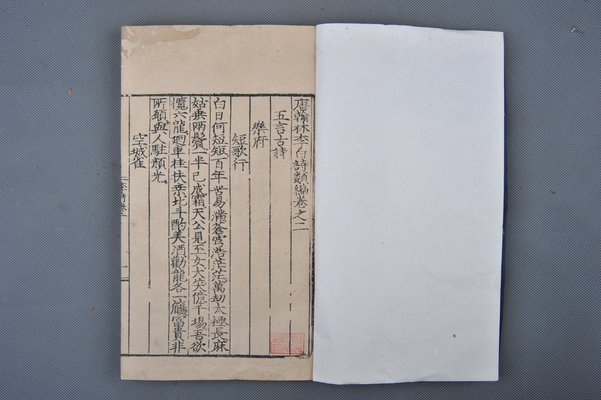 唐翰林李白詩類編卷之二
五言古詩
樂府
短歌行
白日何短短百年苦易滿蒼穹浩茫茫萬劫太極長麻
姑垂兩鬢一半已成霜天公見玉女大笑億千場吾欲
攬六龍廻車挂扶桒北斗酌美酒勸龍各一觴富貴非
所願與人駐顔光
空城雀